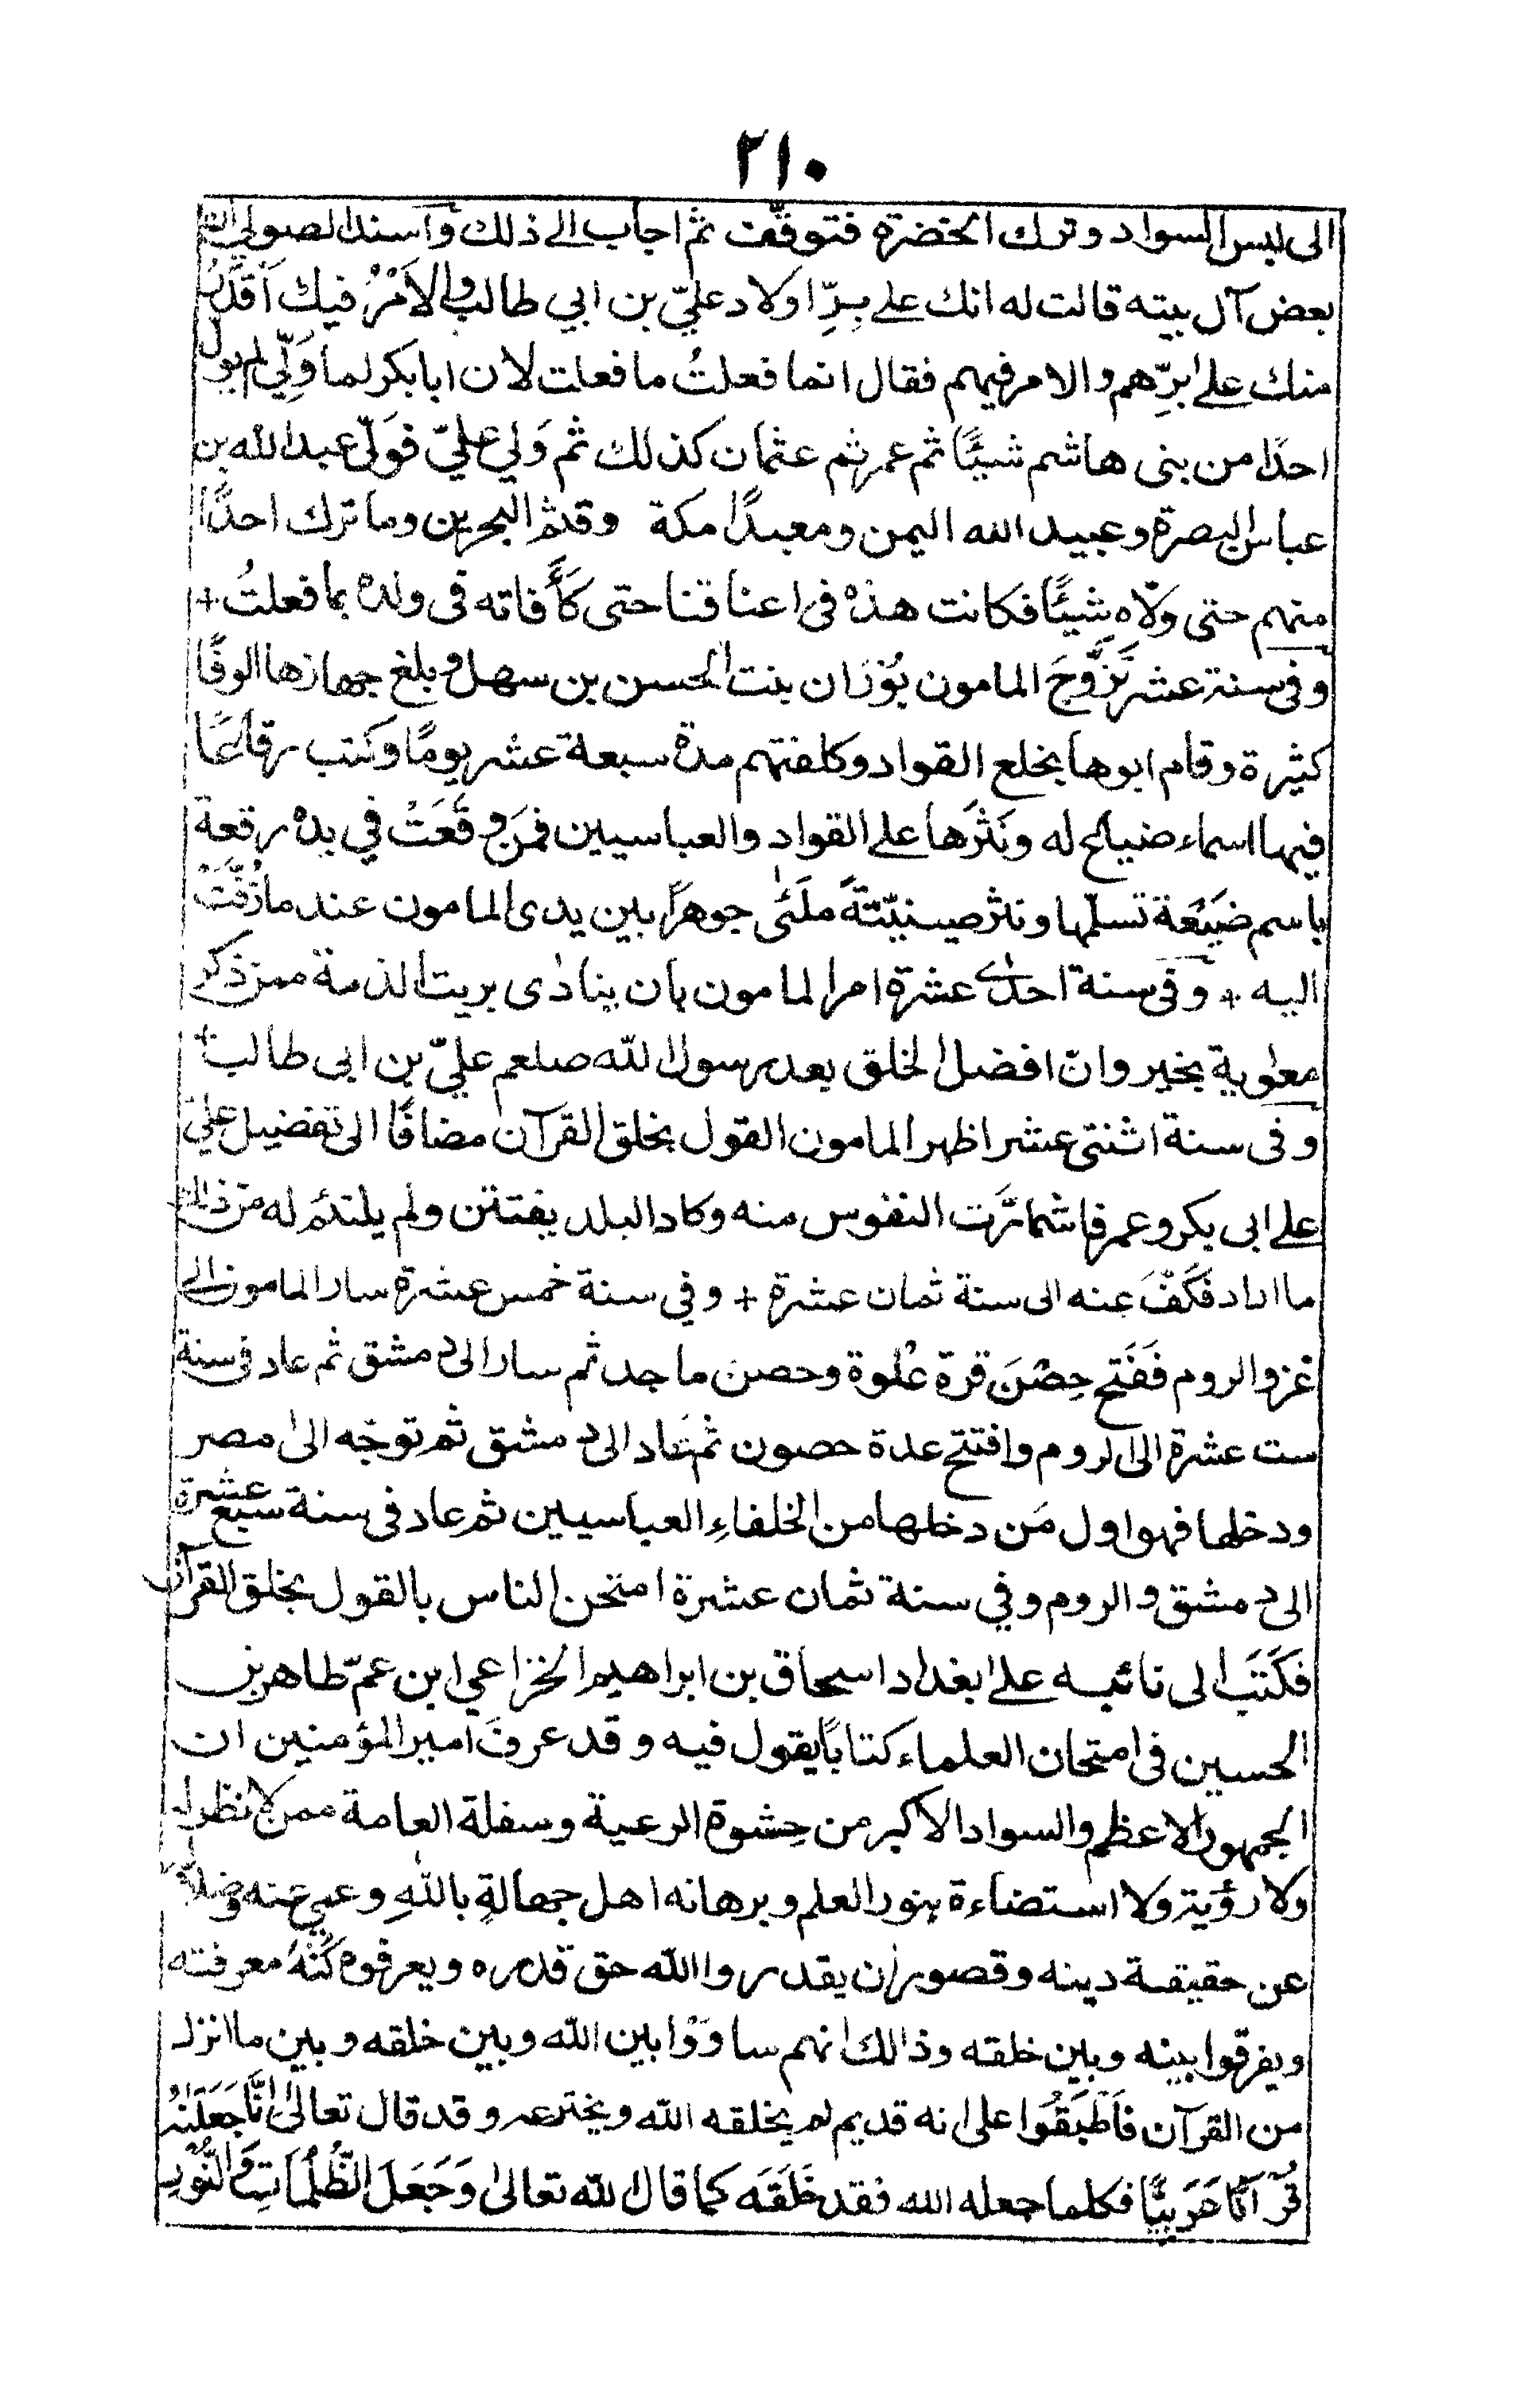 ٢١٠
الى لبس السواد وترك الخضرة فتوقّف ثم اجاب الى ذلك وآسند الصولي ان
بعض آل بيته قالت له انك على بِرِّ اولاد عليّ بن ابي طالب والاَمْرُ فيك اَقدَرُ
منك على بِرِّهم والامر فيهم فقال انما فعلتُ ما فعلت لان ابا بكر لما وَلِّي لم يول
احدًا من بنى هاشم شيئًا ثم عمر ثم عثمان كذلك ثم وَلي عليّ فوَلّى عبد الله بن
عباس البصرة وعبيد الله اليمن ومعبدًا مكة وقثم البحرين وما ترك احدًا
منهم حتى ولّاه شيئًا فكانت هذه فى اعناقنا حتى كَأَفاته فى ولده بما فعلتُ +
وفى سنة عشر تَزَوَّجَ المامون بُوْرَان بنت الحسن بن سهل وبلغ جهازها الوفًا
كثيرة وقام ابوها بخلع القواد وكلفتهم مدة سبعة عشر يومًا وكتب رقاعًا
فيها اسماء ضياع له ونَثَرَها على القواد والعباسيين فمَن وقَعَتْ في يده رقعة
باسم ضَيْعَة تسلّمها ونثر صينيّتةً ملَئٰى جوهرًا بين يدى المامون عند ما زُفَّتْ
اليه + وفى سنة احدى عشرة امر المامون بان ينادٰى بريت الذمة ممن ذكر
معٰوية بخير وانّ افضل الخلق بعد رسول الله صلعم عليّ بن ابى طالب +
وفى سنة اثنتى عشر اظهر المامون القول بخلق القرآن مضافًا الى تفضيل علي
على ابى بكر وعمر فاشمازَّت النفوس منه وكاد البلد يفتتن ولم يلتئم له من ذلك
ما اراد فَكَفَّ عنه الى سنة ثمان عشرة + وفي سنة خمس عشرة سار المامون الى
غزو الروم فَفَتح حِصْنَ قرة عُلوة وحصن ماجد ثم سار الى دمشق ثم عاد فى سنة
ست عشرة الى الروم وافتتح عدة حصون ثم عَاد الى دمشق ثم توجّه الى مصر
ودخلها فهو اول مَن دخلها من الخلفاءِ العباسيين ثم عاد فى سنة سبع عشرة
الى دمشق والروم وفي سنة ثمان عشرة امتحن الناس بالقول بخلق القرآن
فكَتَبَ الى نائبه على بغداد اسحاق بن ابراهيم الخزاعي ابن عمّ طاهر بن
الحسين فى امتحان العلماء كتابًا يقول فيه وقد عرفَ امير المؤمنين ان
الجمهور الاعظم والسواد الاكبر من حِشوة الرعية وسفلة العامة ممن لا نظر له
ولا رؤية ولا استضاءة بنور العلم وبرهانه اهل جهالةٍ باللهِ وعمي عنه وضلالة
عن حقيقة دينه وقصور ان يقدروا الله حق قدره ويعرفوه كُنْهَ معرفته
ويفرقوا بينه وبين خلقه وذالك انهم ساوَوْا بين الله وبين خلقه وبين ما انزل
من القرآن فاَطْبَقُوا على انه قديم لم يخلقه الله ويخترعه وقد قال تعالىٰ اِنَّا جَعَلْنٰهُ
قُرْآنًا عَرَبِيًّا فكلما جعله الله فقد خَلَقَه كما قال الله تعالىٰ وَجَعَلَ الظُّلُمَاتِ وَالنُّوْرَ